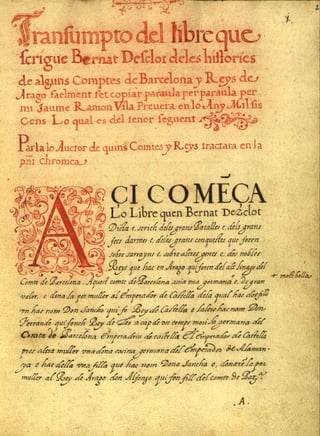 Transumpto del libre que
scrigue Bernat Desclot deles histories
de alguns Comptes de Barcelona y Reys de
Arago faelment fet copiar paraula per paraula per
mi Jaume Ramon Vila Preuera en lo Any Mil sis
Cens Lo qual es del tenor seguent
Parla lo Auctor de quins Comtes y Reys tractara en la
pñt chronica
ACI COMĒÇA
Lo Libre quen Bernat Dezclot
Dicta e scrich dels grans Batalles e dels grans
fets darmes e dels grans conquestes que feren
sobre sarrayns e sobre altres gents e dos nobles
Reys que hac en Arago qui foren del alt linage del
+ molt bella
Comte de Barcelona. Aquest comte de Barcelona hauia una germana e de gran
valor. e dona la per muller al Emperador de Castella dela qual hac dos fills
un hac nom Don Sancho qui fo Rey de Castella e laltre hac nom Don
Ferrando qui fo Rey de Leo a cap de un temps mori la germana del
Comte de Barcelona Emperadriu de castella. El Emperador de Castella
pres altra muller una dona cosina germana del Emperador de Alaman-
ya e hac della una filla que hac nom Dona Sancha e donarela per
muller al Rey de Arago don Alfonso qui fon fill del comte de Barna.
.A.